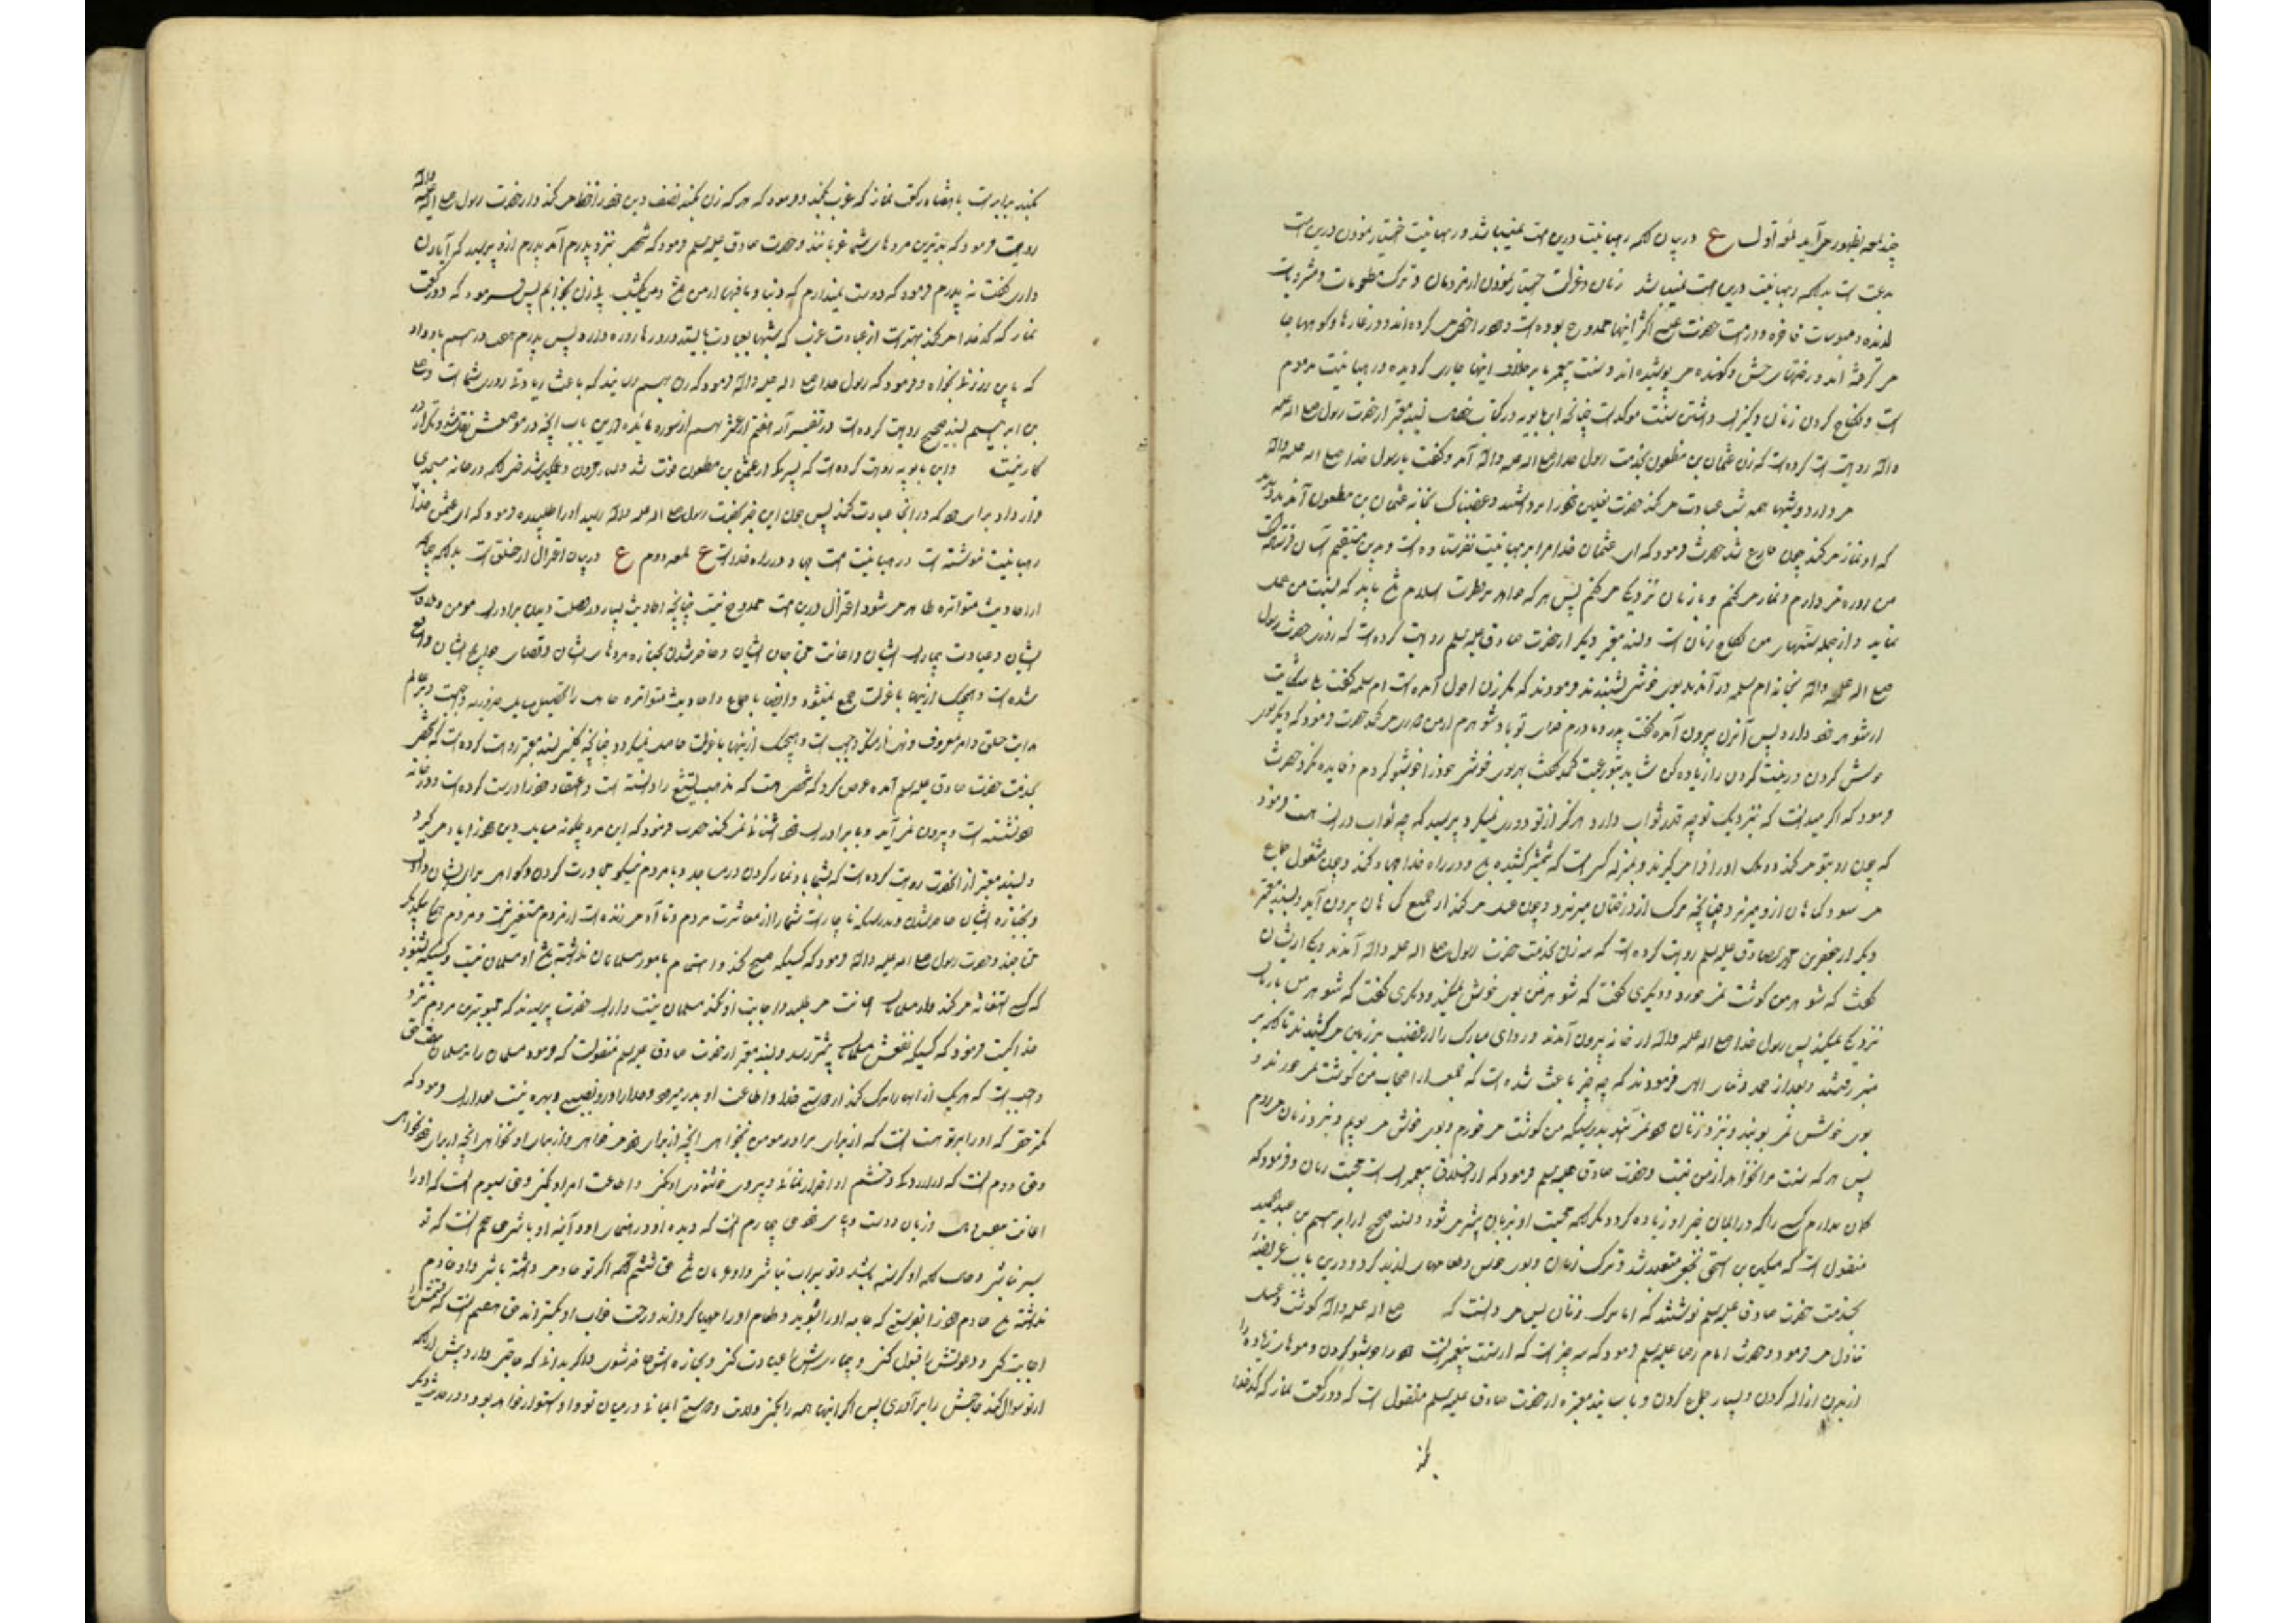 چند لمعه بظهور می‌آید لمعهٔ اول ع در بیان آنکه رهبانیت درین امت نمیباشد و رهبانیت اختیار نمودن درین امت
بدعت است بدانکه رهبانیت درین امت نمیباشد زنان و عزلت اختیار نمودن از مردمان و ترک مطعومات و مشروبات
لذیذه و ملبوسات فاخره و در امت حضرت عیسی اکثر اینها ممدوح بوده است و خود را خصی میکرده‌اند و در غارها و کوهها جا
می گرفته اند و رختهای خشن و کهنه می پوشیده اند و سنت پیغمبر ما بر خلاف اینها جاری گردیده و رهبانیت مذموم
است و نکاح کردن زنان و کنیزان داشتن سنت موکد است چنانچه ابن بابویه در کتاب خصال بسند معتبر از حضرت رسول صلی الله علیه
واله روایت کرده است که زن عثمان بن مظعون بخدمت رسول خدا صلی الله علیه واله آمد و گفت یا رسول خدا صلی الله علیه واله
می دارد و شبها همه شب عبادت می کند حضرت نعلین خود را برداشتند و غضبناک بخانه عثمان بن مظعون آمدند دیدند
که او نماز می کند چون فارغ شد حضرت فرمود که ای عثمان خدا مرا برهبانیت نفرستاده است و بدین مستقیم آسان فرستاده است
من روزه می دارم و نماز می کنم و با زنان نزدیکی می کنم پس هر که خواهد بر فطرت اسلام باشد باید که بسنت من عمل
نماید و از جمله سنتهای من نکاح زنان است و بسند معتبر دیگر از حضرت صادق علیه السلم روایت کرده است که روزی حضرت رسول
صلی الله علیه واله بخانه ام سلمه در آمدند بوی خوشی شنیدند فرمودند که مگر زن احول آمده است ام سلمه گفت بلی شکایت
از شوهر خود دارد پس آنزن بیرون آمد گفت پدر و مادرم فدای تو باد شوهرم از من دوری می کند حضرت فرمود که دیگر بوی
خوش کردن و زینت کردن را زیاده کن شاید بتو رغبت کند گفت بهر بوی خوشی خود را خوشبو کردم و فایده نکرد حضرت
فرمود که اگر میدانست که نزدیک تو چه قدر ثواب دارد هرگز از تو دوری نمیکرد پرسید که چه ثواب در آن هست فرمود
که چون رو بتو می کند دو ملک او را فرا میگیرند و بمنزله کسی است که شمشیر کشیده باشد و در راه خدا جهاد کند و چون مشغول جماع
می شود گناهان از او میریزد چنانچه برگ از درختان میریزد و چون غسل می کند از جمیع گناهان بیرون آید و بسند معتبر
دیگر از جعفر بن محمد الصادق علیه السلم روایت کرده است که سه زن بخدمت حضرت رسول صلی الله علیه واله آمدند یکی از ایشان
گفت که شوهر من گوشت نمی خورد و دیگری گفت که شوهر من بوی خوش نمیکند و دیگری گفت که شوهر من با زنان
نزدیکی نمیکند پس رسول خدا صلی الله علیه واله از خانه بیرون آمدند و ردای مبارک را از غضب بر زمین می کشیدند تا آنکه بر
منبر رفتند و بعد از حمد و ثنای الهی فرمودند که چه چیز باعث شده است که جمعی از اصحاب من گوشت نمی خورند و
بوی خوش نمی بویند و نزد زنان خود نمی آیند بدرستیکه من گوشت می خورم و بوی خوش می بویم و نزد زنان می روم
پس هر که سنت مرا نخواهد از من نیست و حضرت صادق علیه السلم فرمود که از اخلاق پیغمبران است محبت زنان و فرمود که
گمان ندارم کسی را که در ایمان خیر او زیاده گردد مگر آنکه محبت او بزنان بیشتر می شود و بسند صحیح از ابراهیم بن عبد الحمید
منقول است که سکین بن اسحق نخعی متعبد شد و ترک زنان و بوی خوش و طعامهای لذیذ کرد و درین باب عریضهٔ
بخدمت حضرت صادق علیه السلم نوشتند که اما ترک زنان پس می دانست که صلی الله علیه واله گوشت و عسل
تناول می فرمود و حضرت امام رضا علیه السلم فرمود که سه چیز است که از سنت پیغمبرانست خود را خوشبو کردن و موهای زیاده را
از بدن ازاله کردن و بسیار جماع کردن و باسانید معتبره از حضرت صادق علیه السلم منقول است که دو رکعت نماز که کدخدا
بکند
بکند برابرست با هفتاد رکعت نماز که عزب بکند و فرمود که هر که زن بکند نصف دین خود را حفظ می کند و از حضرت رسول صلی الله علیه واله
روایت فرمود که بدترین مرده‌های شما عزبانند و حضرت صادق علیه السلم فرمود که شخصی بنزد پدرم آمد پدرم از و پرسید که آیا زن
داری گفت نه پدرم فرمود که دوست نمیدارم که دنیا و مافیها از من باشد و من یکشب بی زن بخوابم پس فرمود که دو رکعت
نماز که کدخدا می کند بهتر است از عبادت عزبی که شبها بعبادت بایستد و روزها روزه دارد پس پدرم هفت درهم باو داد
که باین زر زنی بخواه و فرمود که رسول خدا صلی الله علیه واله فرمود که زن بهم رسانید که باعث زیادتی روزی شما است و علی
بن ابرهیم بسند صحیح روایت کرده است در تفسیر آیه از سوره مائده درین باب آنچه در موضعش نقل شد و تکرار در
کار نیست وابن بابویه روایت کرده است که پسری از عثمان بن مظعون فوت شد و بسیار محزون و غمگین شد حتی آنکه در خانه مسجدی
قرار داد برای خود که در آنجا عبادت کند پس چون این خبر بحضرت رسول صلی الله علیه واله رسید او را طلبیده فرمود که ای عثمن خدا
رهبانیت ننوشته است و رهبانیت امت جهاد در راه خداست ع لمعه دوم ع در بیان اعتزال از خلق است بدانکه چنانکه
از احادیث متواتره ظاهر می شود اعتزال درین امت ممدوح نیست چنانچه احادیث بسیار در فضیلت دیدن برادران مومن و ملاقات
ایشان و عیادت بیماران ایشان و اعانت محتاجان ایشان و حاضر شدن بجنازه مرده‌های ایشان و قضای حوایج ایشان واقع
شده است و هیچیک از اینها با عزلت جمع نمیشود و ایضا باجماع و احادیث متواتره جاهل را تحصیل مسایل ضروریه واجبست و بر عالم
هدایت خلق و امر معروف و نهی از منکر واجب است و هیچیک از اینها با عزلت حاصل نمیگردد چنانچه کلینی بسند معتبر روایت کرده است که شخصی
بخدمت حضرت صادق علیه السلم آمده عرض کرد که شخصی هست که مذهب تشیع را دانسته است و اعتقاد خود را درست کرده است و در خانه
خود نشسته است و بیرون نمی آید و با برادران خود آشنائی نمی کند حضرت فرمود که این مرد چگونه مسایل دین خود را یاد می گیرد
و بسند معتبر از آنحضرت روایت کرده است که بشما باد نماز کردن در مساجد و با مردم نیکو مجاورت کردن و گواهی برای ایشان دادن
و بجنازه ایشان حاضر شدن بدرستیکه ناچارست شما را از معاشرت مردم و تا آدمی زنده است از مردم مستغنی نیست و مردم همه بیکدیگر
محتاجند و حضرت رسول صلی الله علیه واله فرمود که کسیکه صبح کند و اهتمام بامور مسلمانان نداشته باشد او مسلمان نیست و کسیکه بشنود
که کسی استغاثه می کند و از مسلمانان اعانت می طلبد و اجابت او نکند مسلمان نیست و از آن حضرت پرسیدند که محبوبترین مردم نزد
خدا کیست فرمود که کسیکه نفعش بمسلمانان بیشتر رسد و بسند معتبر از حضرت صادق علیه السلم منقولست که فرمود مسلمان را بر مسلمان هفت حق
واجب است که هر یک از آنها را ترک کند از دوستی خدا و اطاعت او بدر میرود و خدا را در او نصیبی و بهره نیست بعد از آن فرمود که
کمتر حقی که او را بر تو هست آنست که از برای برادر مومن بخواهی آنچه از برای خود می خواهی و از برای او نخواهی آنچه از برای خود نخواهی
و حق دوم آنست که از آزردن و خشم او احتراز نمائی و پیروی خشنودی او کنی و اطاعت امر او کنی و حق سیوم آنست که او را
اعانت کنی بجان و مال و زبان و دست و پای خود حق چهارم آنست که دیده او و رهنمای او و آینه او باشی حق پنجم آنست که تو
سیر نباشی و حال آنکه او گرسنه باشد و تو سیراب نباشی و او عریان باشد حق ششم آنکه اگر تو خادمی داشته باشی و او خادم
نداشته باشد خادم خود را بفرستی که جامه او را بشوید و طعام او را مهیا گرداند و رخت خواب او بگستراند حق هفتم آنست که قسمش را
اجابت کنی و دعوتش را قبول کنی و بیمارش را عیادت کنی و بجنازه اش حاضر شوی و اگر بدانی که حاجتی دارد پیش از آنکه
از تو سوال کند حاجتش را برآوردی پس اگر اینها همه را بکنی ولایت و دوستی ایمانی در میان تو و او استوار خواهد بود و در حدیث دیگر